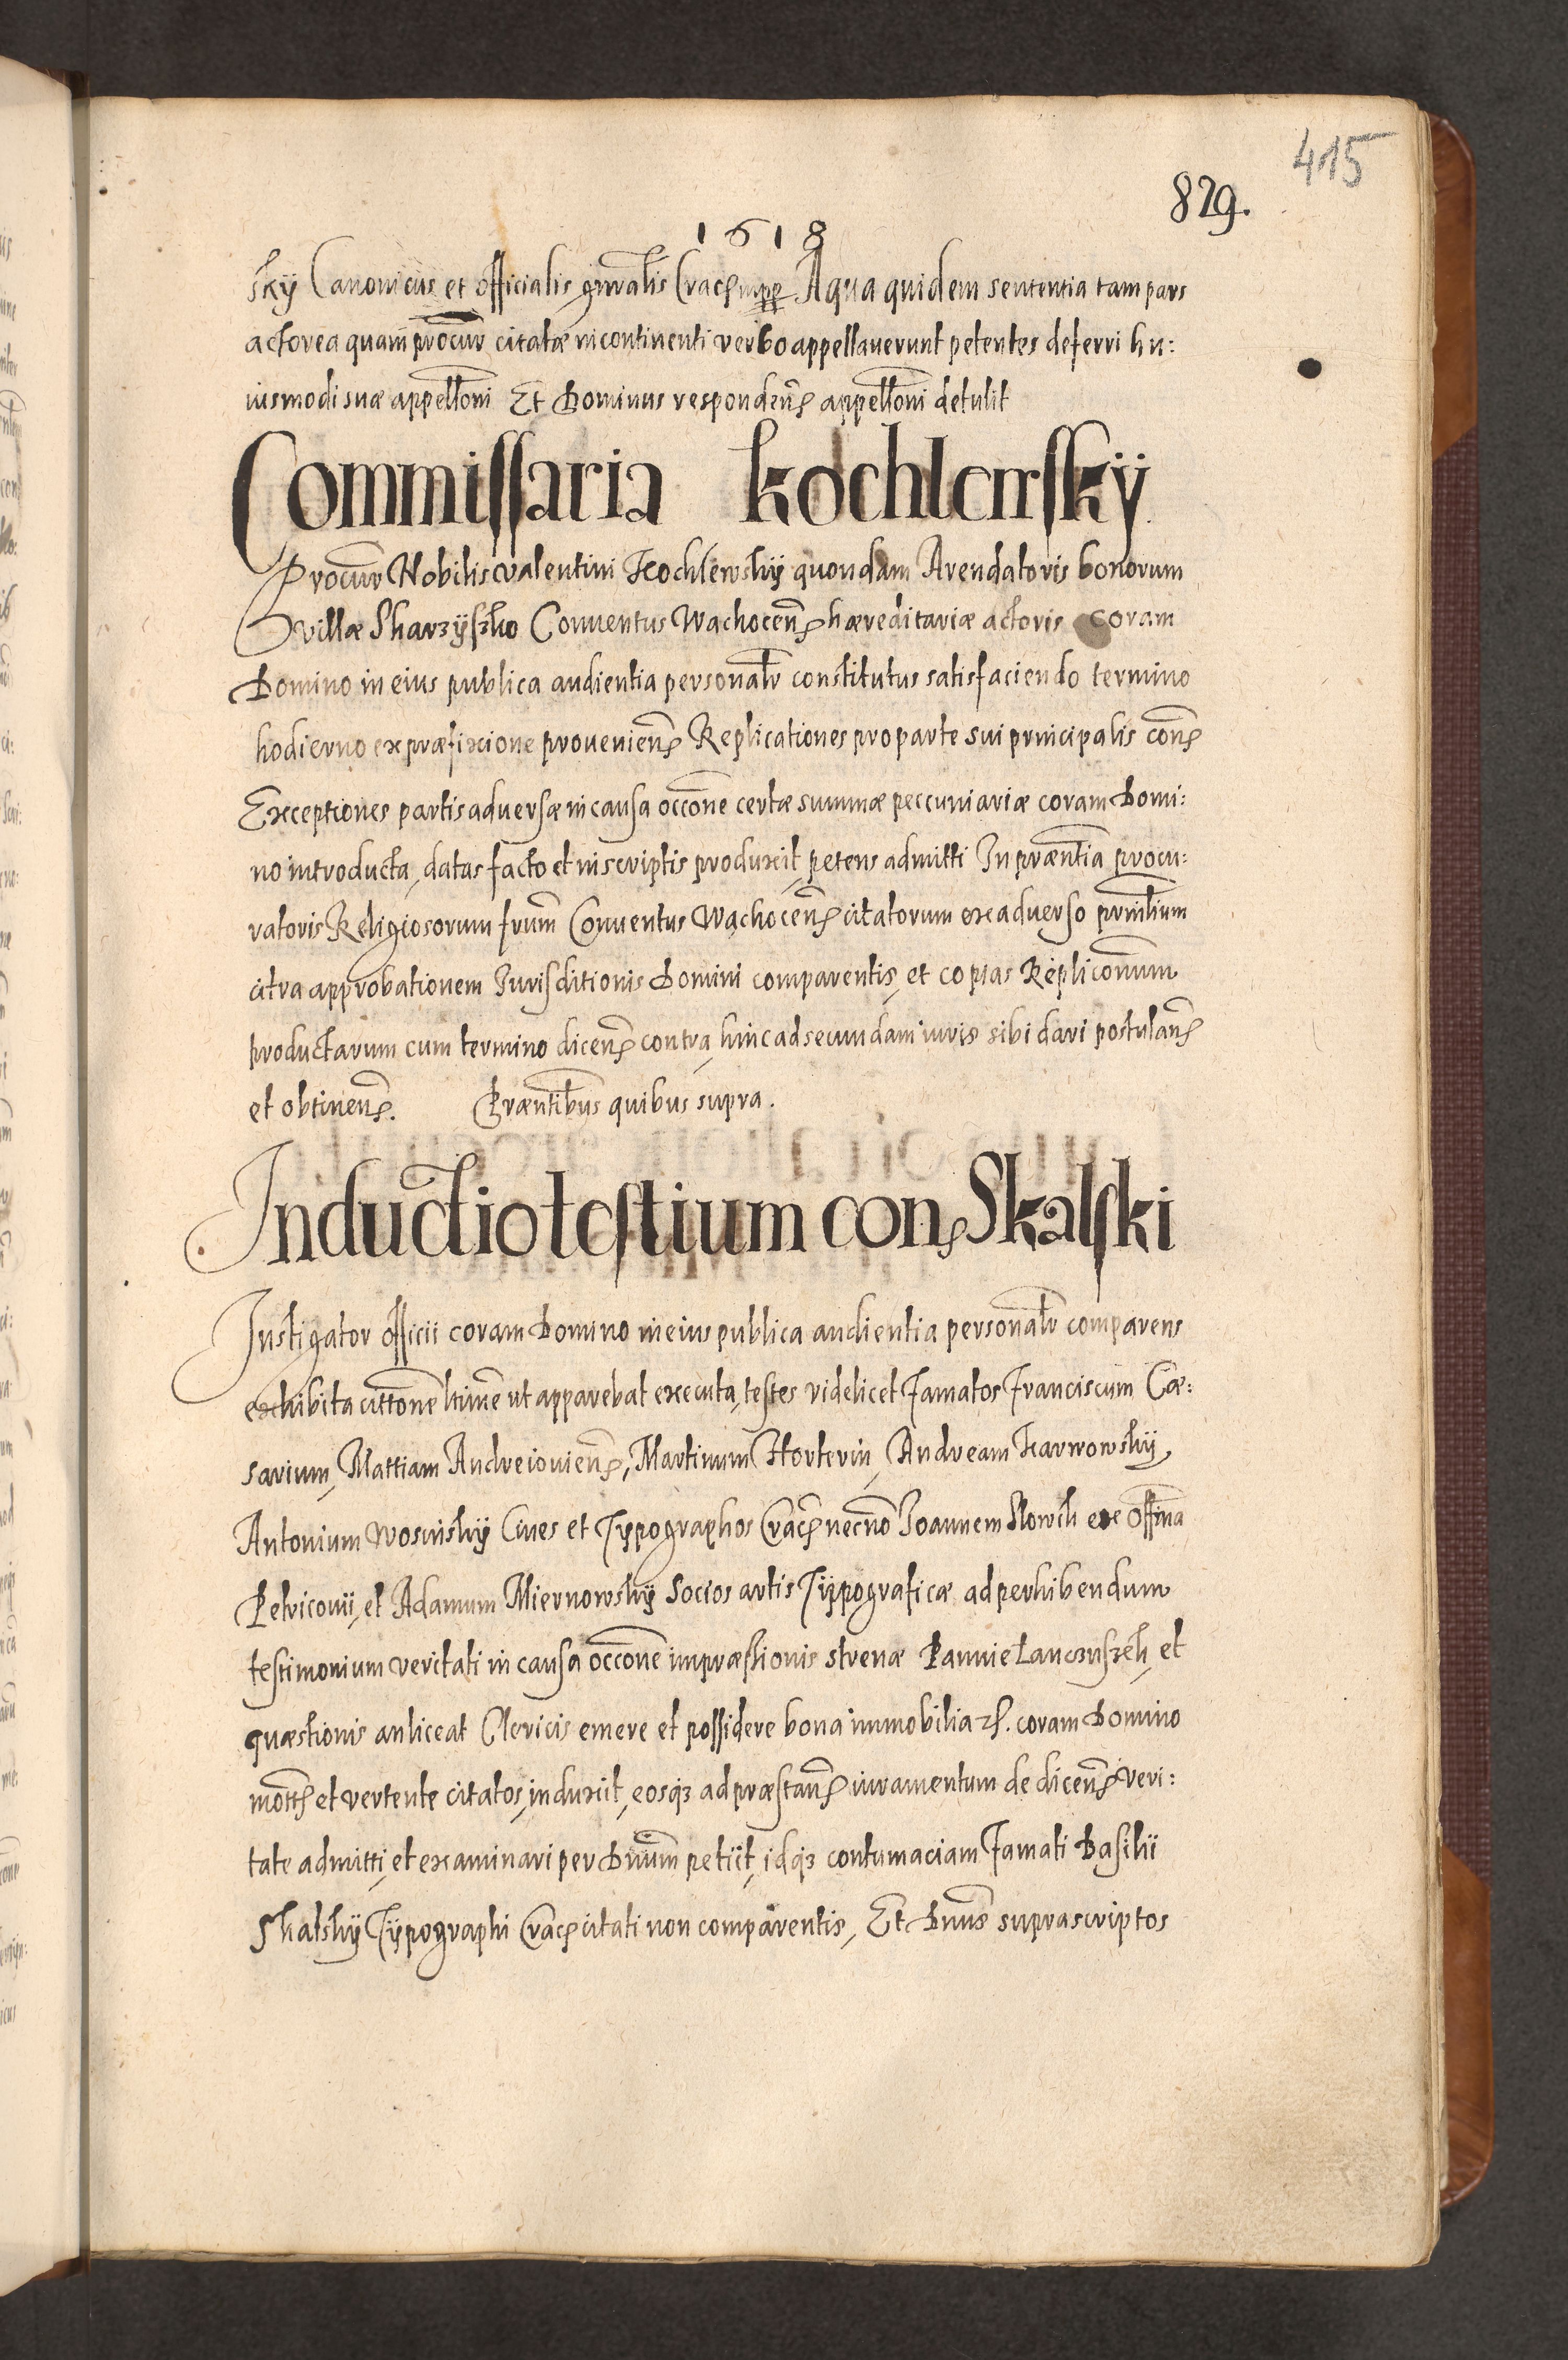 415
829.
1618
skÿ Canonicus et officialis gnralis Crac mpp A qua quidem sententia tam pars
actorea quam procur citatæ incontinenti verbo appellaverunt petentes deferri hu:
iusmodi suæ appellõni Et Dominus respondens appellõni detulit
Commissaria Kochlewskÿ
Procur Nobilis Valentini Kochlewskÿ quondam Arendatoris bonorum
villæ Skarzÿszko Conventus Wachocens hæreditariæ actoris coram
Domino in eius publica audientia personalr constitutus satisfaciendo termino
hodierno ex præfixione proveniens Replicationes pro parte sui principalis cons
Exceptiones partis adversæ in causa occõne certæ summæ peccuniariæ coram Domi:
no introducta, datas facto et in scriptis produxit, petens admitti In præntia procu:
ratoris Religiosorum frum Conventus Wachocens citatorum ex adverso prinlium
citra approbationem Jurisditionis Domini comparentis, et copias Repliconum
productarum cum termino dicens contra, hinc ad secundam iuris sibi dari postulans
et obtinens. Præntibus quibus supra.
Inductio testium con Skalski
Instigator officii coram Domino in eius publica audientia personalr comparens
exhibita cittõne ltime ut apparebat executa, testes videlicet famatos Franciscum Cæ:
sarium, Mattiam Andreioviens, Martinum Horterin, Andream Karwowskÿ,
Antonium Wosinskÿ Cives et Typographos Crac necno Joannem Slowik exe offina
Petricovii, et Adamum Miernowskÿ Socios artis Tÿpograficæ ad perhibendum
testimonium veritati in causa occõne impræssionis strenæ Pannie Lanczuszek, et
quæstionis an liceat Clericis emere et possidere bona immobilia etc. coram Domino
mott et vertente citatos, induxit, eosq3 ad præstans iuramentum de dicens veri:
tate admitti, et examinari per Dnum petiit, idq3 contumaciam famati Basilii
Skalskÿ Tÿpographi Crac citati non comparentis, Et Dnus suprascriptos